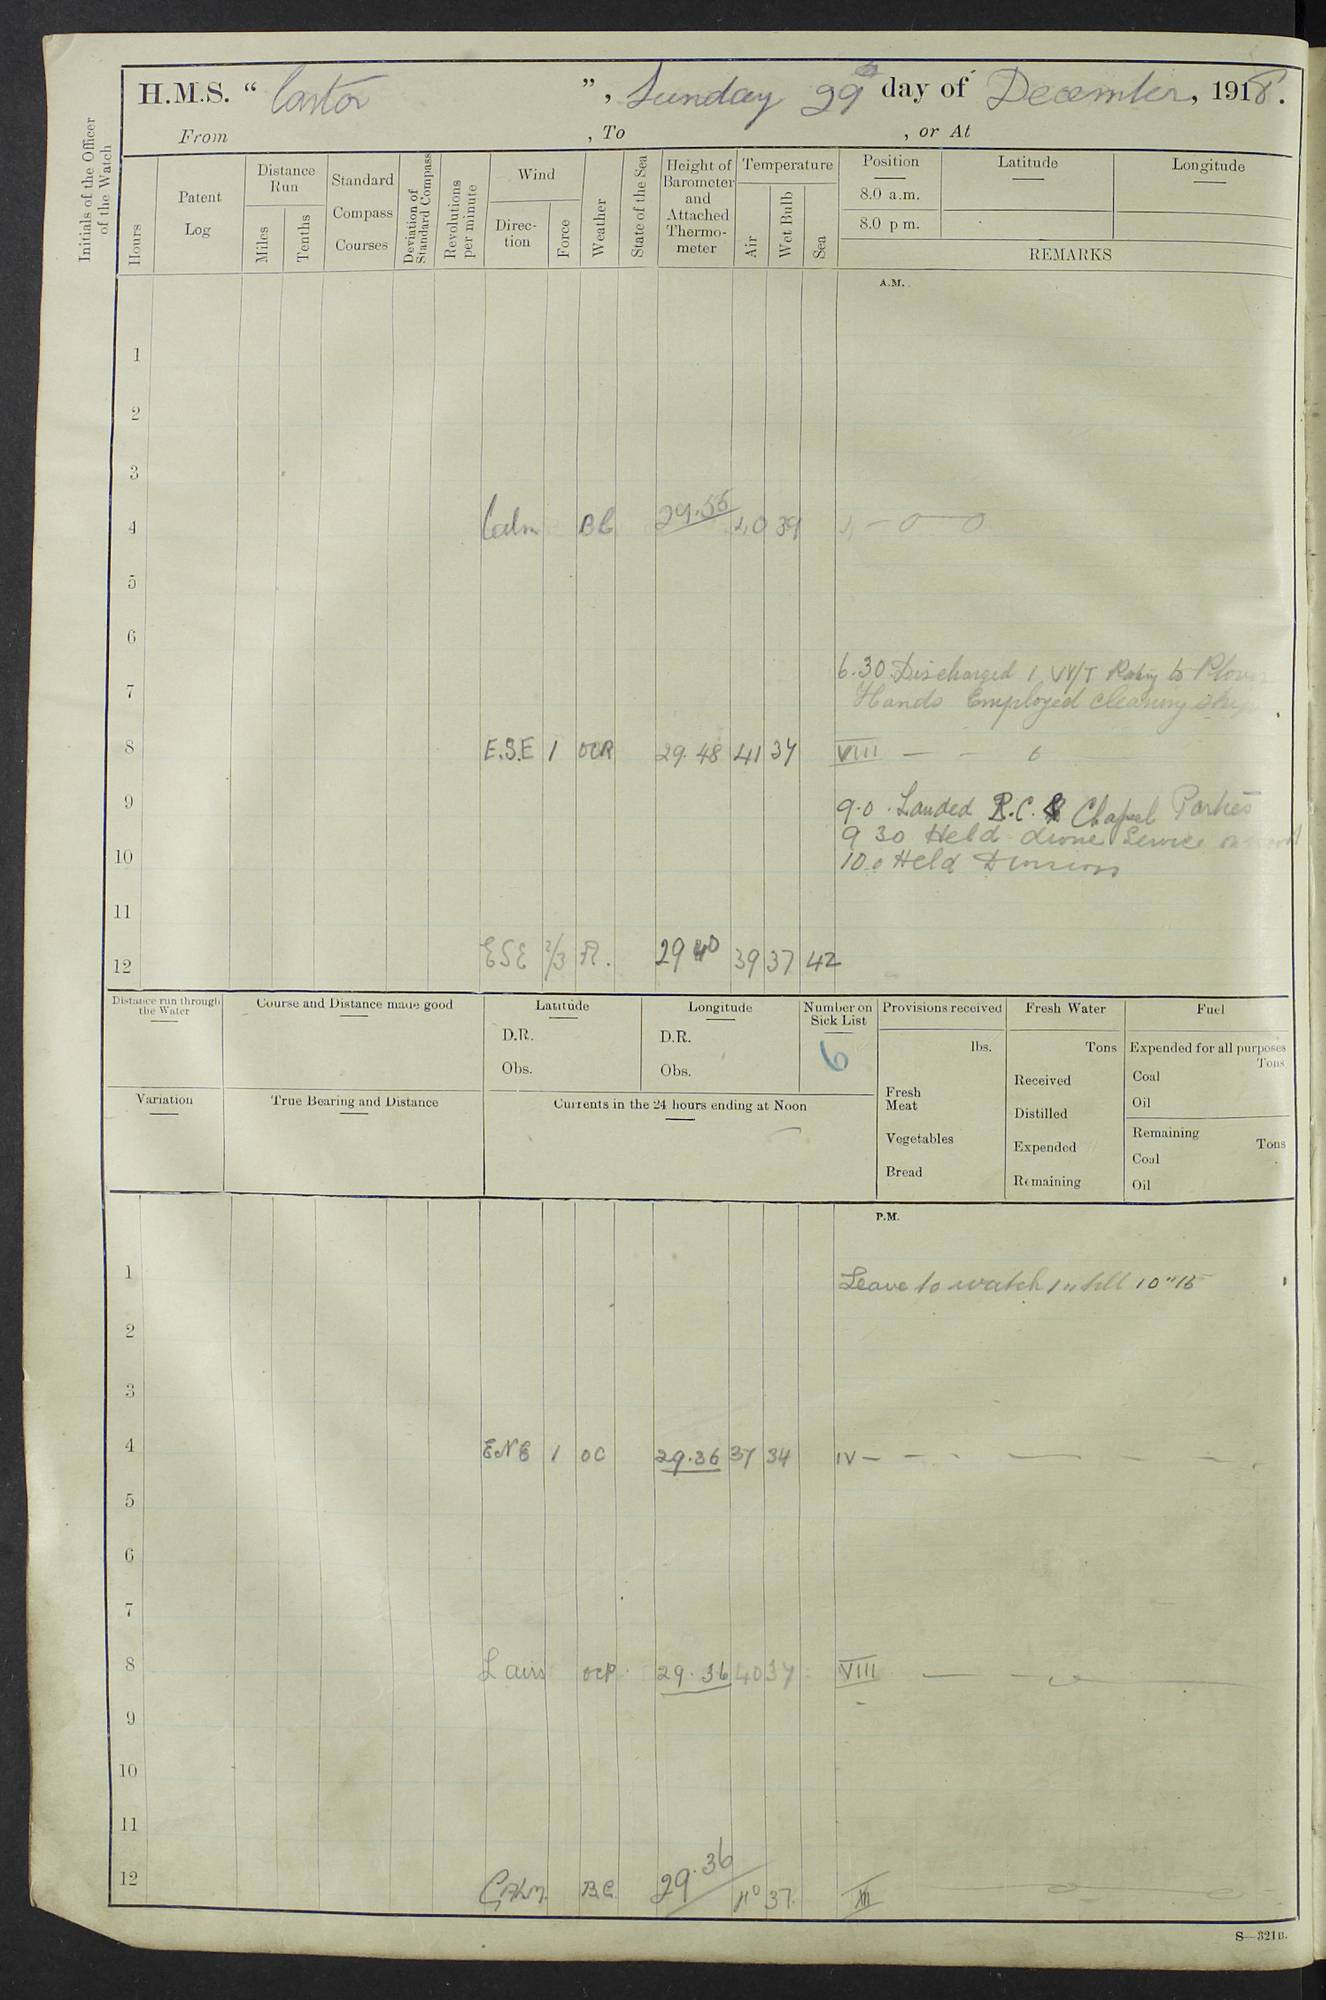 H.M.S. " Castor ", Sunday 29th day of December, 1918.
From , To , or At
Initials of the Officer of the Watch
Hours
Patent Log
Distance Run
Miles
Tenths
Standard Compass Courses
Deviation of Standard Compass
Revolutions per minute
Wind
Direction
Force
Weather
State of the Sea
Height of Barometer and Attached Thermometer
Temperature
Air
Wet Bulb
Sea
Position
Latitude
Longitude
8.0 a.m.
8.0 p m.
REMARKS
A.M.
1
2
3
4 Calm BC 29.55 40 39
5
6
6.30 Discharged 1 W/T Rating to
7 Hands Employed cleaning ship
8 E.S.E 1 OCR 29.48 41 37 VIII
9 9.0 Landed R.C. & Chapel Parties
9 30 Held divine Service
10 10.0 Held Divisions
11
12 ESE 2/3 R. 29 40 39 37 42
Distance run through the Water
Course and Distance made good
Latitude
D.R.
Obs.
Longitude
D.R.
Obs.
Number on Sick List
6
Provisions received
lbs.
Fresh Meat
Vegetables
Bread
Fresh Water
Tons
Received
Distilled
Expended
Remaining
Fuel
Expended for all purposes
Tons
Coal
Oil
Remaining
Tons
Coal
Oil
Variation
True Bearing and Distance
Currents in the 24 hours ending at Noon
P.M.
1 Leave to watch 1" till 10"15
2
3
4 ENE 1 OC 29.36 37 34 IV
5
6
7
8 29.36 40 37 VIII
9
10
11
12 Calm BC 29.36 40 37. XII
S—321B.